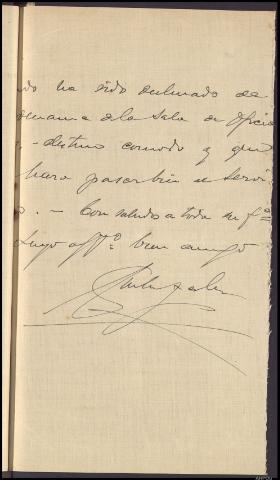 do ha sido declinado de
de la Sala de Oficia
- destino comodo y que
hara pasar bien el servi
o. - Con saludos a toda su fª
suyo affº buen amigo